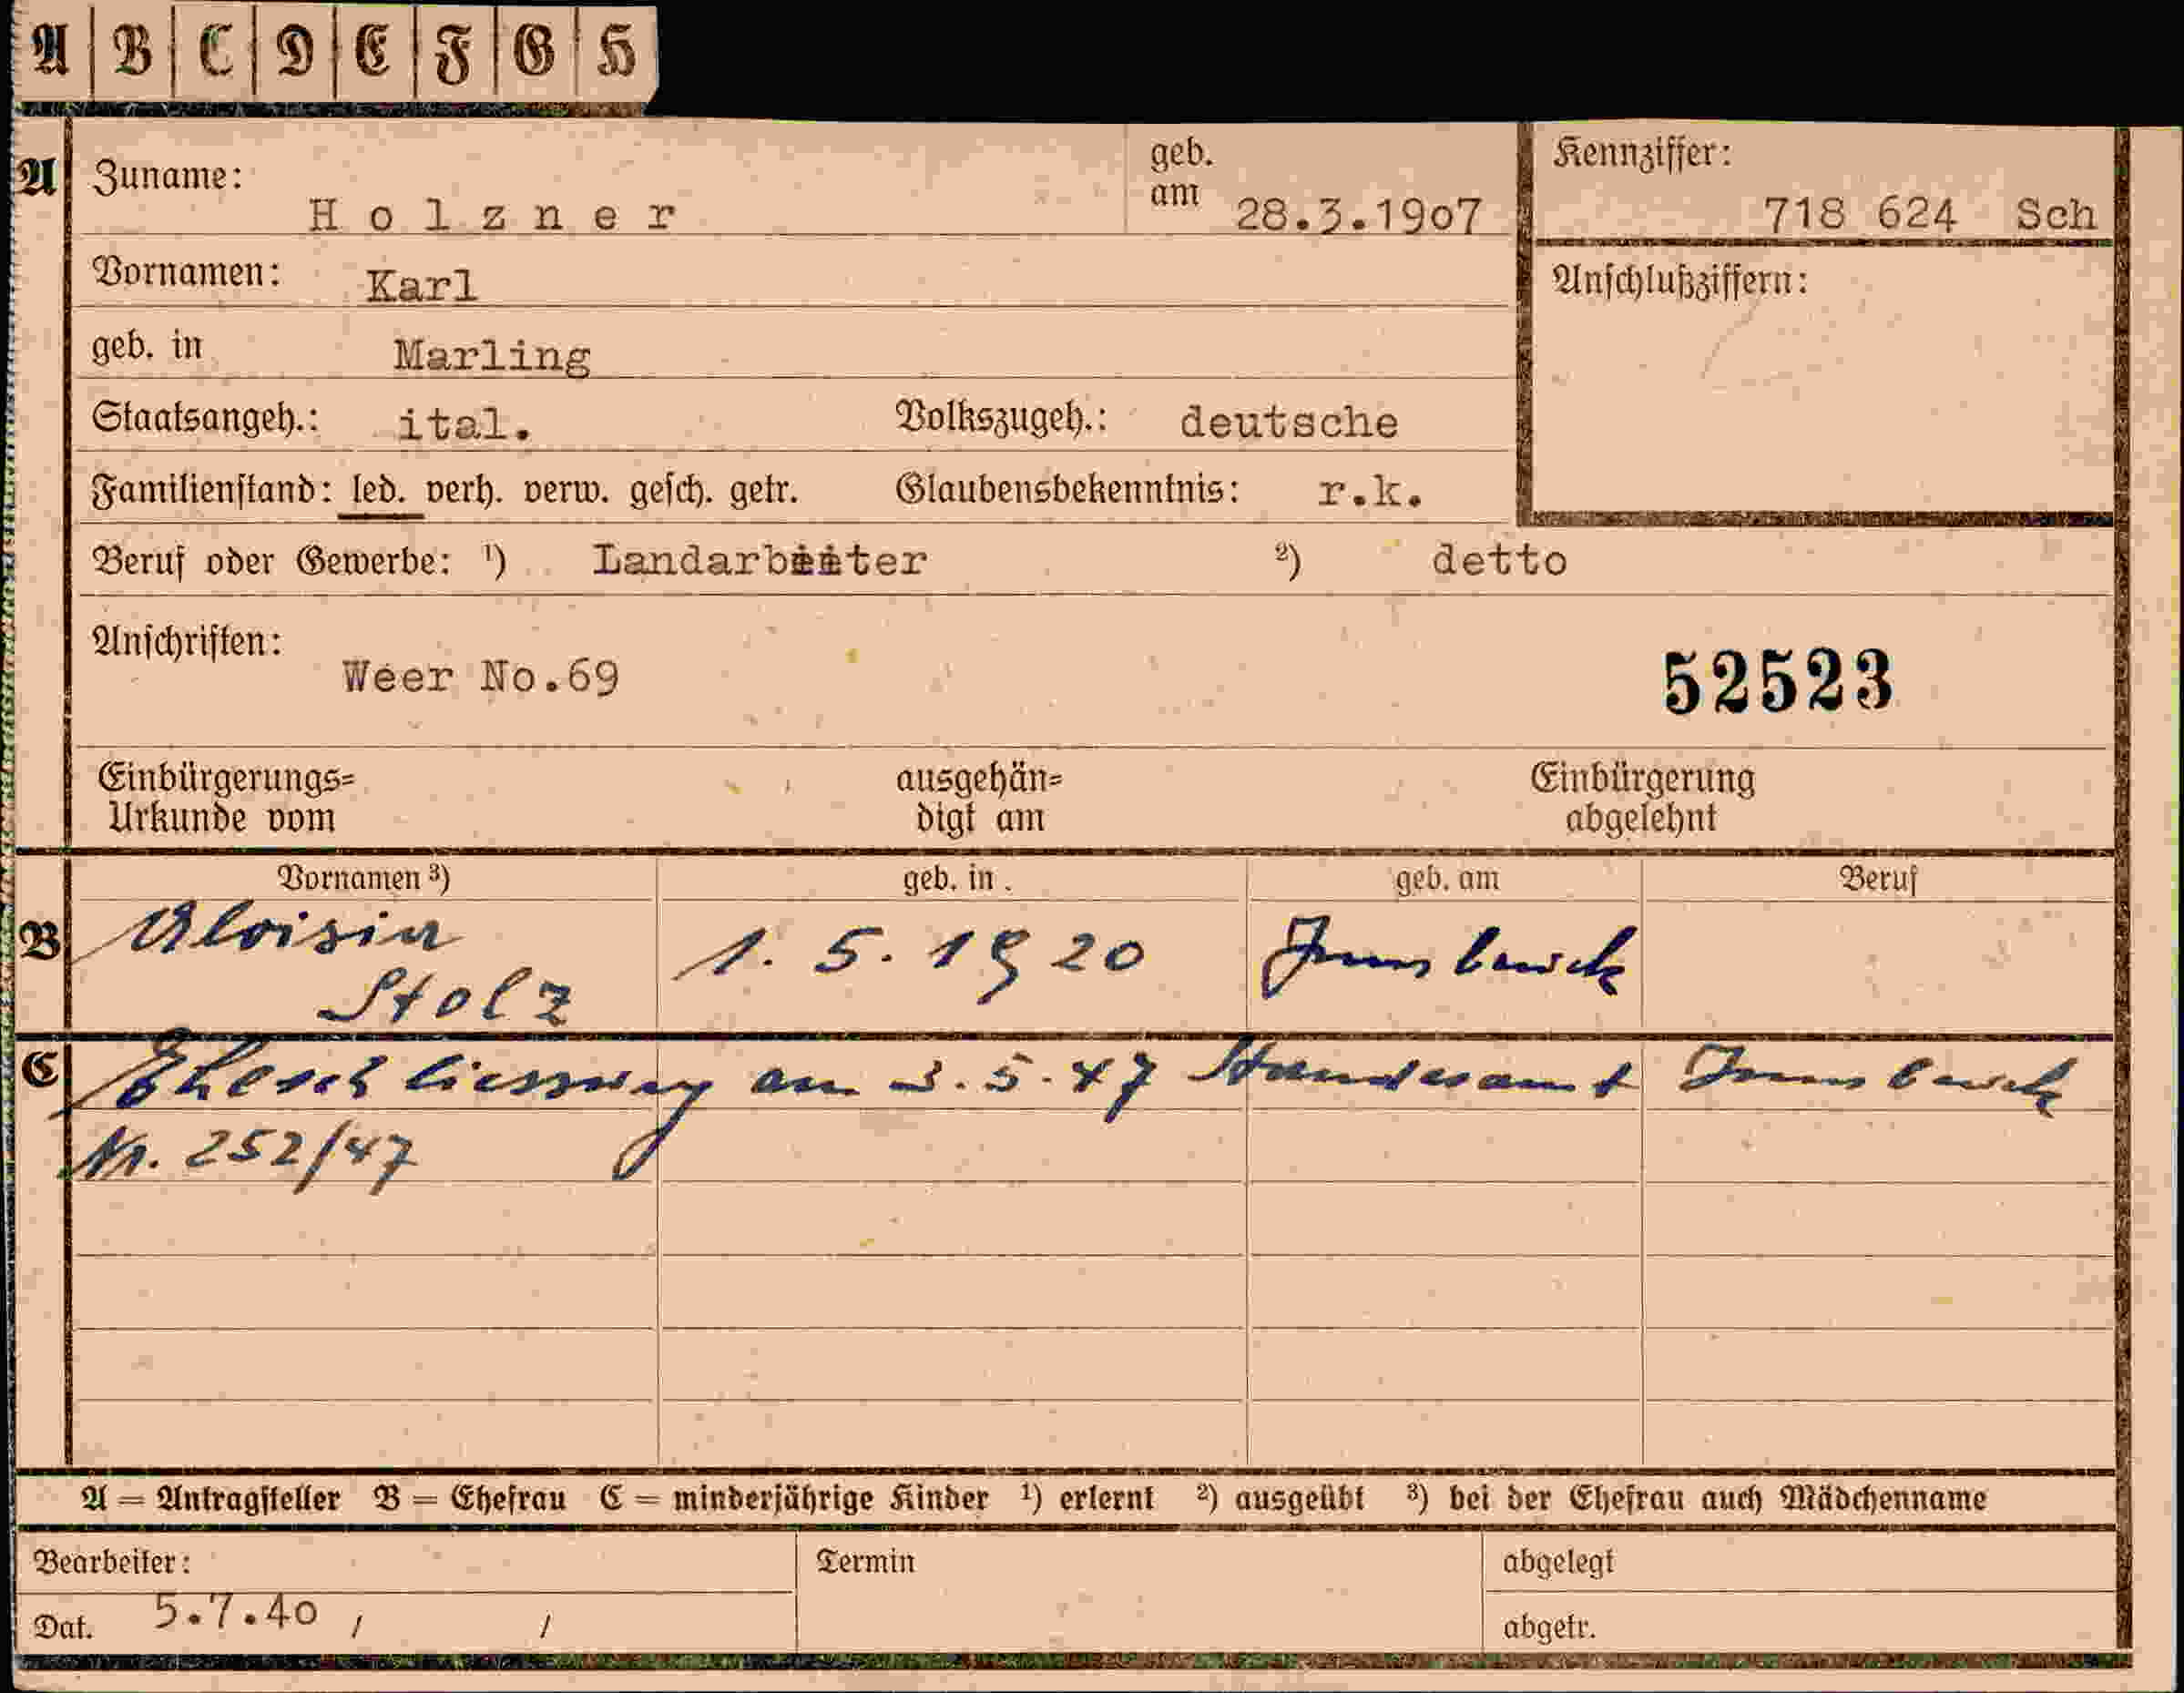 A B C D E F G H
A Zuname: Holzner geb. am 28.3.19o7 Kennziffer: 718 624 Sch
Vornamen: Karl Anschlußziffern:
geb. in Marling
Staatsangeh.: ital. Volkszugeh.: deutsche
Familienstand: led. verh. verw. gesch. getr. Glaubensbekenntnis: r.k.
Beruf oder Gewerbe: ¹) Landarbeiter ²) detto
Anschriften: Weer No.69 52523
Einbürgerungs= ausgehän= Einbürgerung
Urkunde vom digt am abgelehnt
Vornamen ³) geb. in geb. am Beruf
B Aloisia 1. 5. 1920 Innsbruck
Stolz
C Eheschliessung am 3.5.47 Standesamt Innsbruck
Nr. 252/47
A = Antragsteller B = Ehefrau C = minderjährige Kinder ¹) erlernt ²) ausgeübt ³) bei der Ehefrau auch Mädchenname
Bearbeiter: Termin abgelegt
Dat. 5.7.4o / / abgetr.